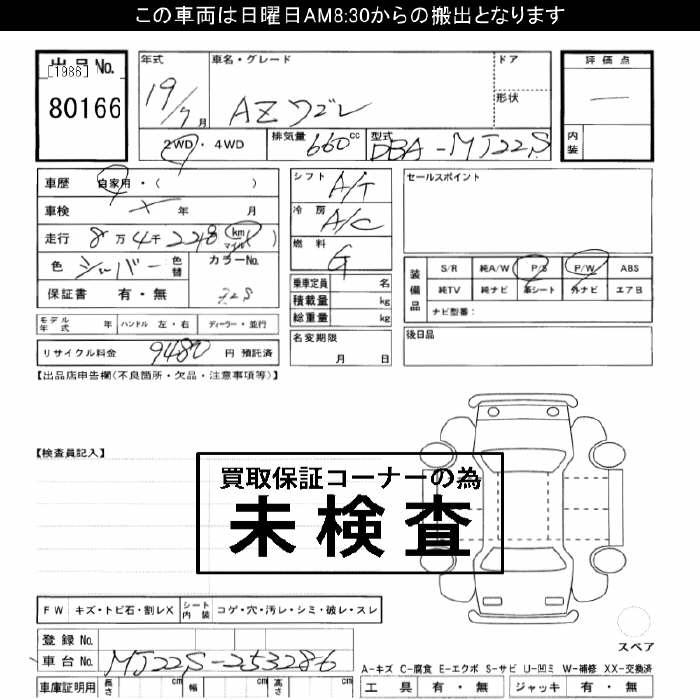 この車両は日曜日AM8:30からの搬出となります
出品No.
[1986]
80166
年式
19/7月
車名・グレード
AZワゴン
ドア
形状
評価点
―
内装
2WD・4WD
排気量 660cc
型式 DBA-MJ22S
車歴 自家用・( )
車検 年 月
走行 8万4千228 (km マイル)
色 シルバー 色替
カラーNo.
保証書 有・無
シフト A/T
冷房 A/C
燃料 G
乗車定員 名
積載量 kg
総重量 kg
名変期限
月 日
セールスポイント
装備品
S/R 純A/W P/S P/W ABS
純TV 純ナビ 革シート 外ナビ エアB
ナビ型番:
後日品
モデル年式 年 ハンドル 左・右 ディーラー・並行
リサイクル料金 9480 円 預託済
【出品店申告欄(不良箇所・欠品・注意事項等)】
【検査員記入】
買取保証コーナーの為
未検査
FW キズ・トビ石・割レX シート内装 コゲ・穴・汚レ・シミ・破レ・スレ
登録No.
車台No. MJ22S-253286
車庫証明用 長さ cm 幅 cm 高さ cm
スペア
A-キズ C-腐食 E-エクボ S-サビ U-凹ミ W-補修 XX-交換済
工具 有・無 ジャッキ 有・無